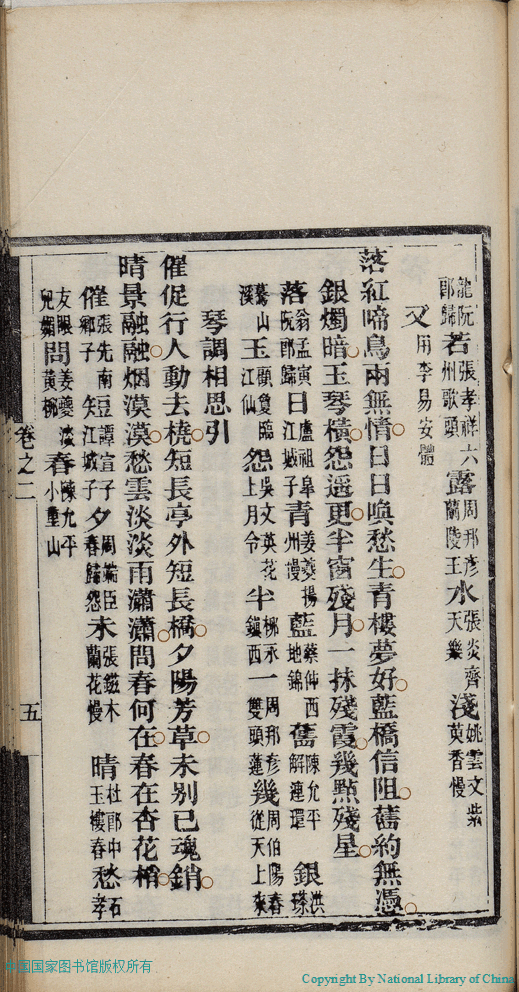 龍阮郎歸若張孝祥六州歌頭露周邦彦蘭陵王水張炎齊天樂淺姚雲文紫萸香慢
又用李易安體
落紅啼鳥兩無情日日喚愁生青樓夢好藍橋信阻舊約無憑
銀燭暗玉琴橫怨遥更半窗殘月一抹殘霞幾點殘星
落翁孟寅阮郎歸日盧祖皋江城子青姜夔揚州慢藍蔡伸西地錦舊陳允平解連環銀洪瑹
驀山溪玉顧敻臨江仙怨吳文英花上月令半柳永小鎮西一周邦彦雙頭蓮幾周伯陽春從天上來
琴調相思引
催促行人動去橈短長亭外短長橋夕陽芳草未別已魂銷
晴景融融烟漠漠愁雲淡淡雨瀟瀟問春何在春在杏花梢
催張先南鄉子短譚宣子江城子夕周端臣春歸怨未張鎡木蘭花慢晴杜郎中玉樓春愁石孝
友眼兒媚問姜夔淡黃柳春陳允平小重山
卷之二
五
中国国家图书馆版权所有
Copyright By National Library of China